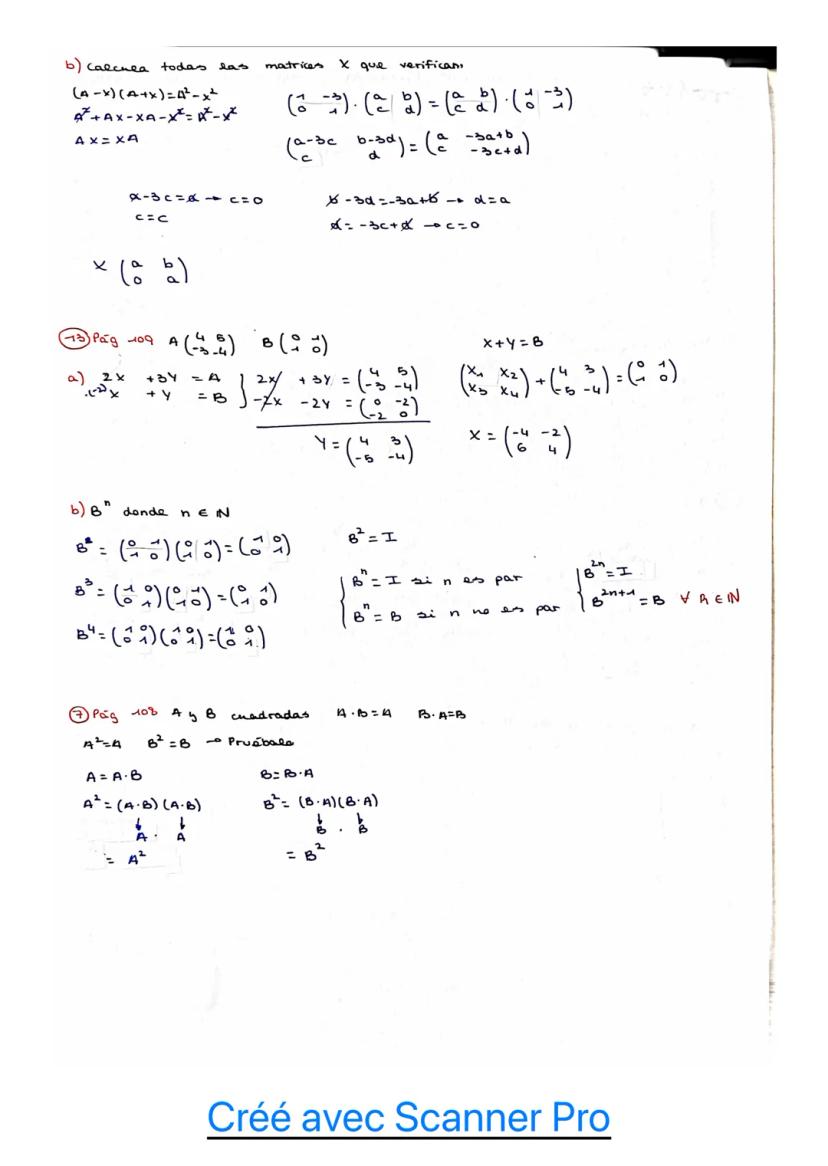 b) Calcula todas las matrices X que verifican
(A-x)(A+x)=A²-x²
A²+AX-XA-X²=A²-X²
AX=XA
(1 -3 / 0 1)·(a b / c d)=(a b / c d)·(1 -3 / 0 1)
(a-3c b-3d / c d)=(a -3a+b / c -3c+d)
a-3c=a → c=0
c=c
b-3d=-3a+b → d=a
d=-3c+d → c=0
X (a b / 0 a)
13 Pág 109 A(4 5 / -3 -4) B(0 1 / 1 0)
a) 2x +3Y = A
·(-2) x +Y = B
2x +3Y = (4 5 / -3 -4)
-2x -2Y = (0 -2 / -2 0)
Y=(4 3 / -5 -4)
X+Y=B
(x₁ x₂ / x₃ x₄)+(4 3 / -5 -4)=(0 1 / 1 0)
X=(-4 -2 / 6 4)
b) Bⁿ donde n ∈ ℕ
B²=(0 1 / 1 0)(0 1 / 1 0)=(1 0 / 0 1)
B³=(1 0 / 0 1)(0 1 / 1 0)=(0 1 / 1 0)
B⁴=(1 0 / 0 1)(1 0 / 0 1)=(1 0 / 0 1)
B²=I
Bⁿ=I si n es par
Bⁿ=B si n no es par
B²ⁿ=I
B²ⁿ⁺¹=B ∀ n ∈ ℕ
7 Pág 108 A y B cuadradas A·B=A B·A=B
A²=A B²=B → Pruébalo
A=A·B
A²=(A·B)(A·B)
↓ ↓
A · A
= A²
B=B·A
B²=(B·A)(B·A)
↓ ↓
B · B
= B²
Créé avec Scanner Pro